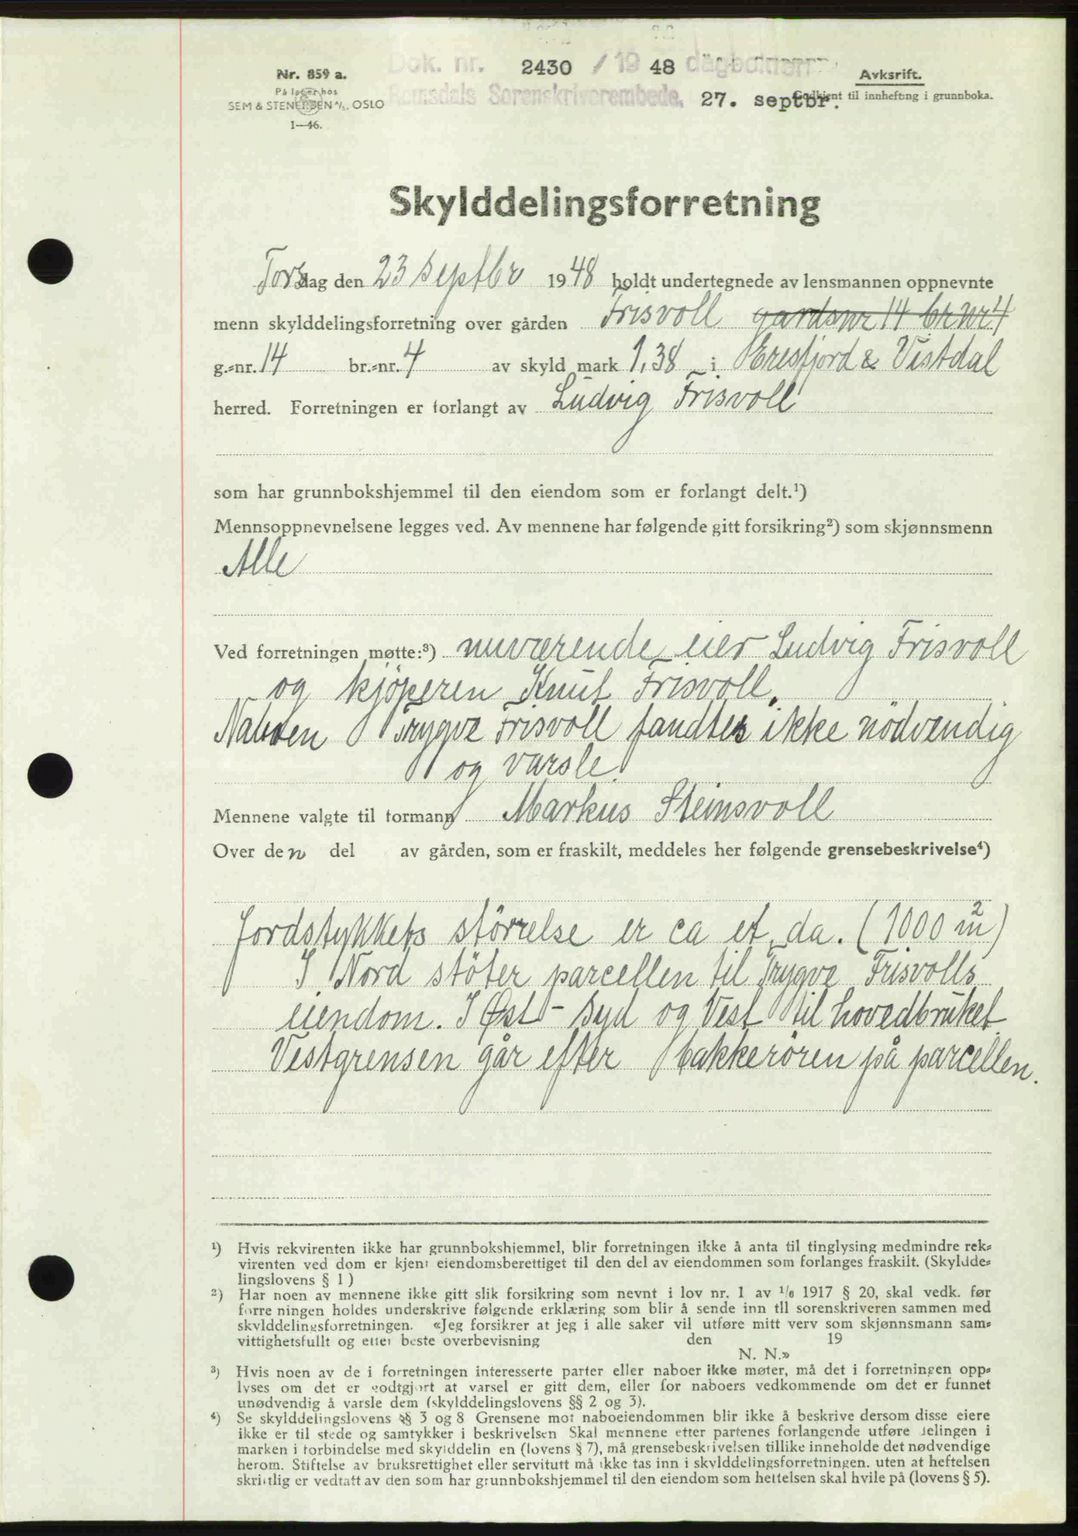 Nr. 859 a.
På lager hos
SEM & STENERSEN A/S, OSLO
1—46.
Dok. nr. 2430 / 1948 dagboken
Romsdals Sorenskriverembede, 27. septbr.
Avskrift.
Godkjent til innhefting i grunnboka.
Skylddelingsforretning
Torsdag den 23 Septbr 1948 holdt undertegnede av lensmannen oppnevnte
menn skylddelingsforretning over gården Frisvoll gardsnr 14 brnr 4
g.-nr. 14 br.-nr. 4 av skyld mark 1,38 i Eresfjord & Vistdal
herred. Forretningen er forlangt av Ludvig Frisvoll
som har grunnbokshjemmel til den eiendom som er forlangt delt.¹)
Mennsoppnevnelsene legges ved. Av mennene har følgende gitt forsikring²) som skjønnsmenn
Alle
Ved forretningen møtte:³) nuværende eier Ludvig Frisvoll
og kjöperen Knut Frisvoll.
Naboen Trygve Frisvoll fandtes ikke nödvendig
og varsle.
Mennene valgte til formann Markus Steinsvoll
Over den del av gården, som er fraskilt, meddeles her følgende grensebeskrivelse⁴)
Jordstykkets störrelse er ca et da. (1000 m²)
I Nord stöter parcellen til Trygve Frisvolls
eiendom. I Øst - Syd og Vest til hovedbruket
Vestgrensen går efter bakkerören på parcellen.
¹) Hvis rekvirenten ikke har grunnbokshjemmel, blir forretningen ikke å anta til tinglysing medmindre rek-
virenten ved dom er kjent eiendomsberettiget til den del av eiendommen som forlanges fraskilt. (Skyldde-
lingslovens § 1)
²) Har noen av mennene ikke gitt slik forsikring som nevnt i lov nr. 1 av 1/6 1917 § 20, skal vedk. før
forretningen holdes underskrive følgende erklæring som blir å sende inn til sorenskriveren sammen med
skylddelingsforretningen. «Jeg forsikrer at jeg i alle saker vil utføre mitt verv som skjønnsmann sam-
vittighetsfullt og etter beste overbevisning den 19
N. N.»
³) Hvis noen av de i forretningen interesserte parter eller naboer ikke møter, må det i forretningen opp-
lyses om det er godtgjort at varsel er gitt dem, eller for naboers vedkommende om det er funnet
unødvendig å varsle dem (skylddelingslovens §§ 2 og 3).
⁴) Se skylddelingslovens §§ 3 og 8 Grensene mot naboeiendommen blir ikke å beskrive dersom disse eiere
ikke er til stede og samtykker i beskrivelsen Skal mennene etter partenes forlangende utføre delingen i
marken i forbindelse med skylddelingen (lovens § 7), må grensebeskrivelsen tillike inneholde det nødvendige
herom. Stiftelse av bruksrettighet eller servitutt må ikke tas inn i skylddelingsforretningen, uten at heftelsen
skriftlig er vedtatt av den som har grunnbokshjemmel til den eiendom som heftelsen skal hvile på (lovens § 5).